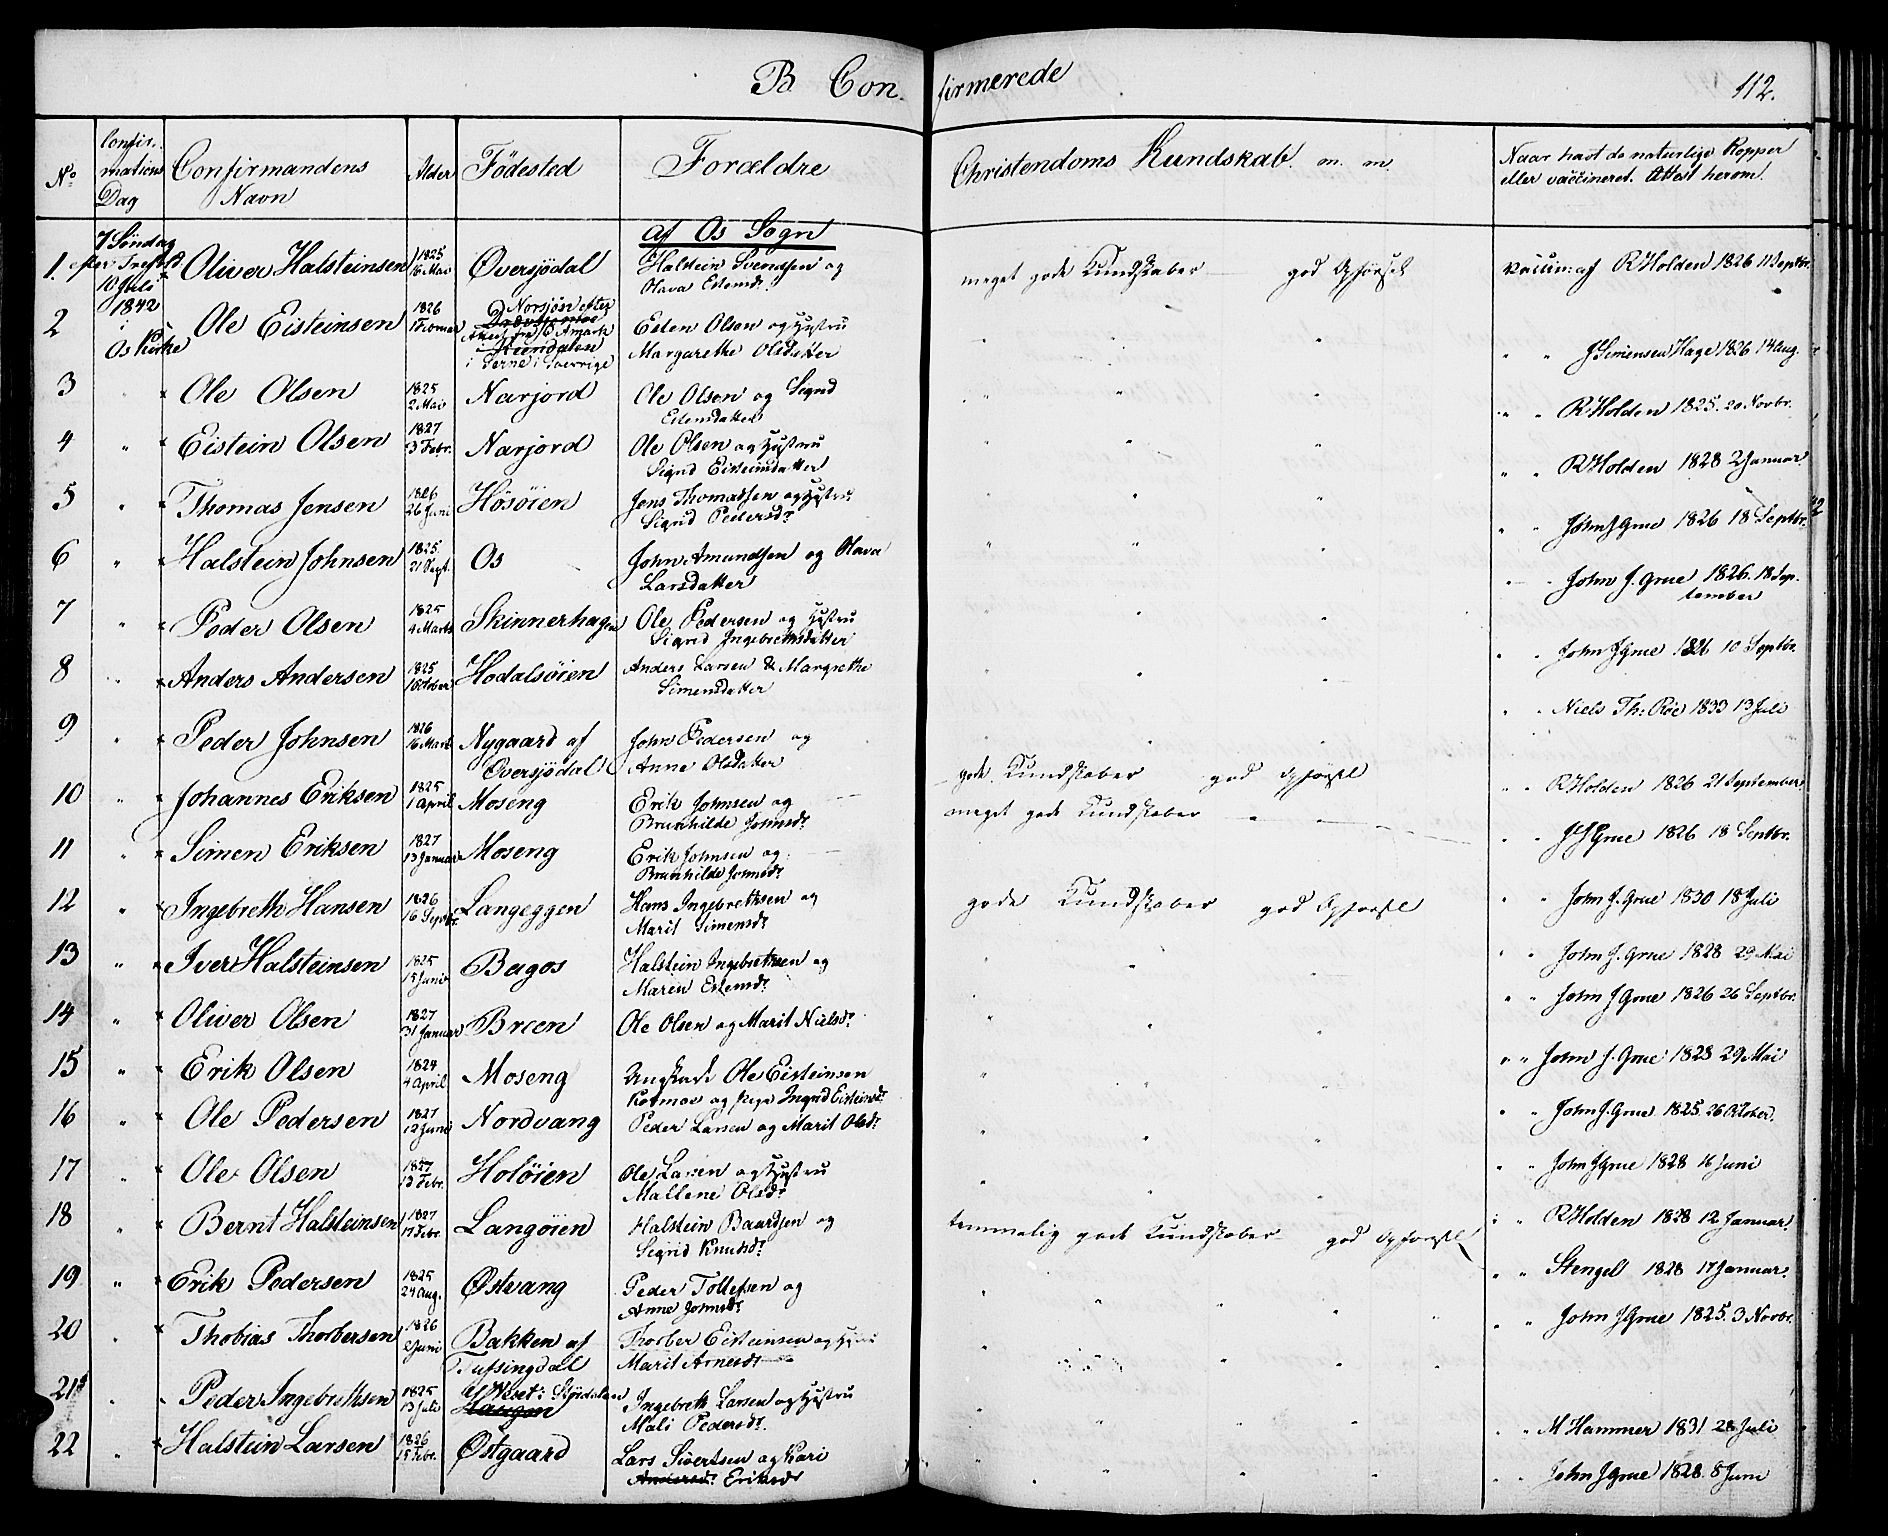 B. Con-
firmerede
112.
No
Confir-
mations
Dag
Confirmandens
Navn
Alder
Födested
Forældre
Christendoms Kundskab. m. m.
Naar havt de naturlige Kopper
eller vaccineret. Attest herom.
af Os Sogn
7 Söndag
10 Juli
1842
i
Os Kirke
1. Oliver Halsteinsen 1825 16 Mai Øversjödal Halstein Svendsen og
Olava Estensdr.
meget gode Kundskaber god Opförsel
vaccin: af R Holden 1826 11 Septbr.
2 Ole Eisteinsen 1826 Esten Olsen og Hustru
Margarethe Olsdatter
" " J Simensen Hage 1826 14 Aug.
3 Ole Olsen 1825 2 Mai Narjord Ole Olsen og Sigrid
Estensdatter
" " R Holden 1825. 20 Novbr.
4 " Eistein Olsen 1827 3 Febr. Narjord Ole Olsen og Hustru
Sigrid Eisteinsdatter
" " R Holden 1828 2 Januar
5 " Thomas Jensen 1826 26 Juni Hösöien Jens Thomassen og Hustru
Sigrid Pedersdr
" " John J Grue 1826 18 Septbr.
6 " Halstein Johnsen 1825 21 Sept. Os John Amundsen og Olava
Larsdatter
" " John J. Grue 1826. 18 Sep-
tember
7 " Peder Olsen 1825 4 Marts Skinnerhagen Ole Pedersen og Hustru
Sigrid Ingebrethsdatter
" " John J Grue 1826 10 Septbr.
8 " Anders Andersen 1825 1 October Hodalsöien Anders Larsen & Margrethe
Simensdatter
" " Niels Th: Röe 1833 13 Juli
9 " Peder Johnsen 1826 16 Marts Nygaard af
Øversjödal John Pedersen og
Anne Olsdatter
gode Kundskaber god Opförsel
" " R Holden 1826 21 September
10 " Johannes Eriksen 1825 1 April Moseng Erik Johnsen og
Brunhilde Johnsdr
meget gode Kundskaber " "
" " J J Grue 1826 18 Septbr.
11 " Simen Eriksen 1827 13 Januar Moseng Erik Johnsen og
Brunhilde Johnsdr
12 " Ingebreth Hansen 1826 16 Septbr. Langeggen Hans Ingebrethsen og
Marit Simensdr
gode Kundskaber god Opförsel
" " John J. Grue 1830 18 Juli
13 " Iver Halsteinsen 1825 15 Juni Bagos Halstein Ingebrethsen og
Maren Estensdr
" " John J. Grue 1828 29 Mai
14 " Oliver Olsen 1827 31 Januar Breen Ole Olsen og Marit Nielsdr
" " John J Grue 1826 26 Septbr.
15 " Erik Olsen 1824 4 April Moseng Ungkarl Ole Eisteinsen
Kotmoe og Pige Ingrid Eisteinsdr
" " John J. Grue 1828 29 Mai
16 " Ole Pedersen 1827 12 Juni Nordvang Peder Larsen og Marit Olsdr
" " John J. Grue 1825. 26 October.
17 " Ole Olsen 1827 13 Febr. Holöien Ole Larsen og Hustru
Mallene Olsdr
" " John J Grue 1828 16 Juni
18 " Bernt Halsteinsen 1827 17 Febr. Langöien Halstein Baardsen og
Sigrid Knudsdr
temmelig gode Kundskaber god Opförsel
" " R Holden 1828 12 Januar
19 " Erik Pedersen 1825 24 Aug. Østvang Peder Tollefsen og
Anne Johnsdr
" " Stengel 1828 17 Januar
20 " Thobias Thorbersen 1826 2 Juni Bakken af
Tufsingdal Thorber Eisteinsen og Hust
Marit Arnesdr
" " John J Grue 1825. 3 Novbr.
21 " Peder Ingebrethsen 1825 13 Juli Haugen Ingebreth Larsen og Hustru
Mali Pedersdr
" " M Hammer 1831 28 Juli
22 " Halstein Larsen 1826 15 Febr. Østgaard Lars Sivertsen og Kari
Andersdr Eriksdr
" " John J Grue 1828. 8 Juni